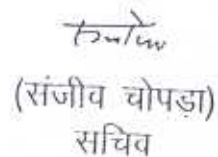 (संजीव चोपड़ा)
सचिव